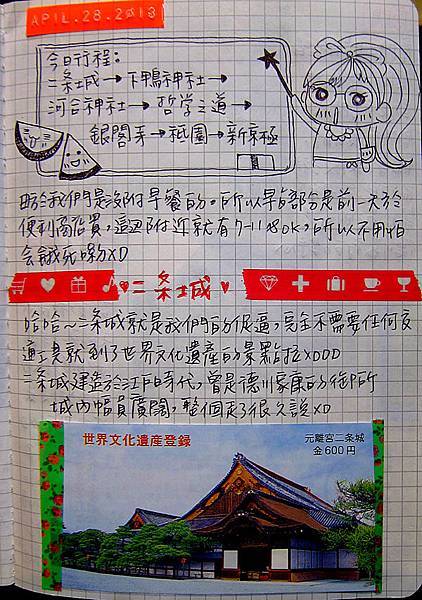 APIL.28.2013
今日行程:
二条城→下鴨神社→
河合神社→哲学之道→
銀閣寺→祇園→新京極
由於我們是沒附早餐的，所以早餐部分是前一天於
便利商店買，這邊附近就有7-11和OK，所以不用怕
會餓死喲XD
二条城
哈哈~二条城就是我們的隔壁，完全不需要任何交
通工具就到了世界文化遺產的景點拉XDDD
二条城建造於江戶時代，曾是德川家康的御所
城內幅員廣闊，整個走了很久說XD
世界文化遺産登録
元離宮二条城
金600円